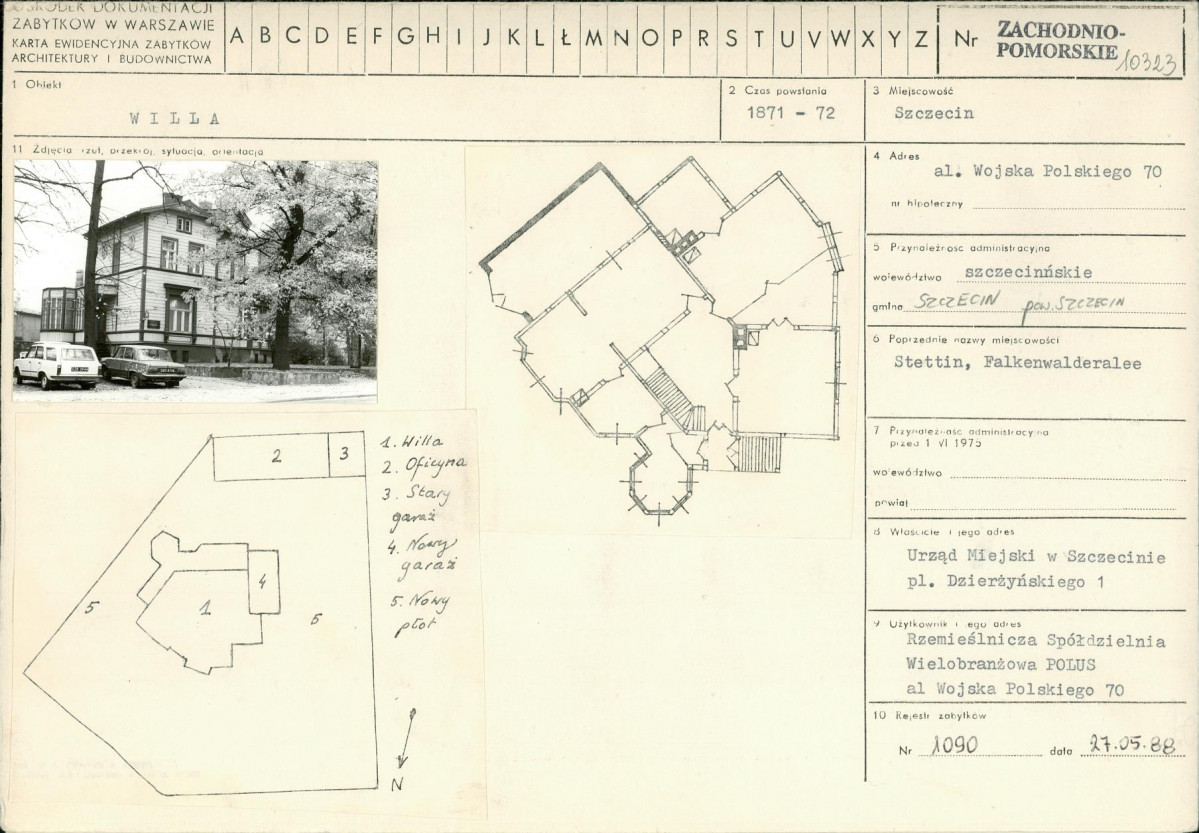 OŚRODEK DOKUMENTACJI
ZABYTKÓW W WARSZAWIE
KARTA EWIDENCYJNA ZABYTKÓW
ARCHITEKTURY I BUDOWNICTWA
A B C D E F G H I J K L Ł M N O P R S T U V W X Y Z
Nr ZACHODNIO-
POMORSKIE 10323
1 Obiekt
WILLA
2 Czas powstania
1871 - 72
3 Miejscowość
Szczecin
11 Zdjęcia rzut, przekrój, sytuacja, orientacja
4 Adres
al. Wojska Polskiego 70
nr hipoteczny
5 Przynależność administracyjna
województwo szczecinńskie
gmina SZCZECIN pow. SZCZECIN
6 Poprzednie nazwy miejscowości
Stettin, Falkenwalderalee
7 Przynależność administracyjna
przed 1 VI 1975
województwo
powiat
8 Właściciel i jego adres
Urząd Miejski w Szczecinie
pl. Dzierżyńskiego 1
9 Użytkownik i jego adres
Rzemieślnicza Spółdzielnia
Wielobranżowa POLUS
al Wojska Polskiego 70
10 Rejestr zabytków
Nr 1090 data 27.05.88
1. Willa
2. Oficyna
3. Stary
garaż
4. Nowy
garaż
5. Nowy
płot
2
3
4
1
5
5
N